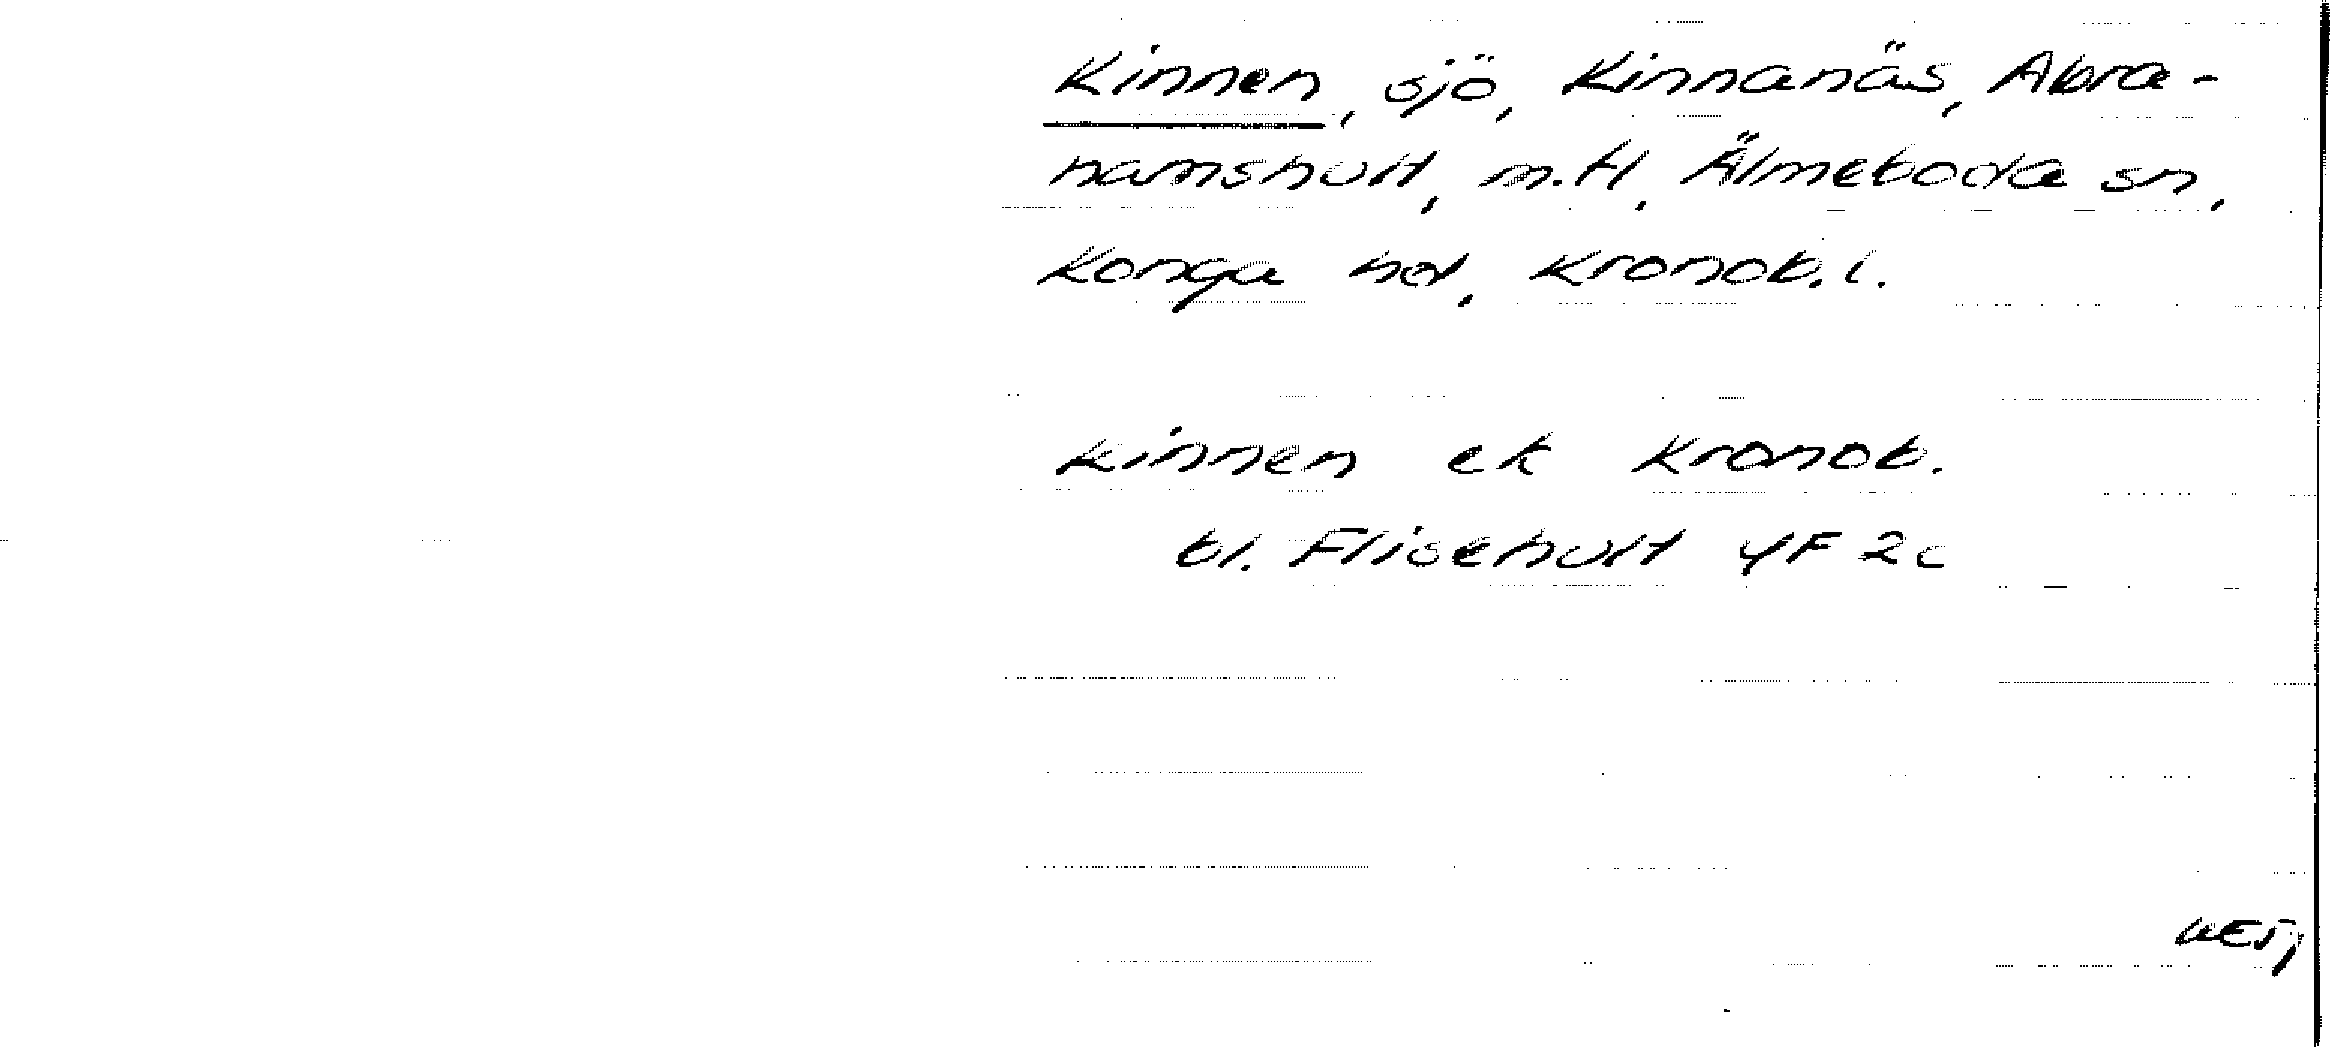 Kinnen, sjö, Kinnanäs, Abra-
hamshult, m.fl, Älmeboda sn,
Konga hd, Kronob. l.
Kinnen ek Kronob.
bl. Flisehult 4F 2c